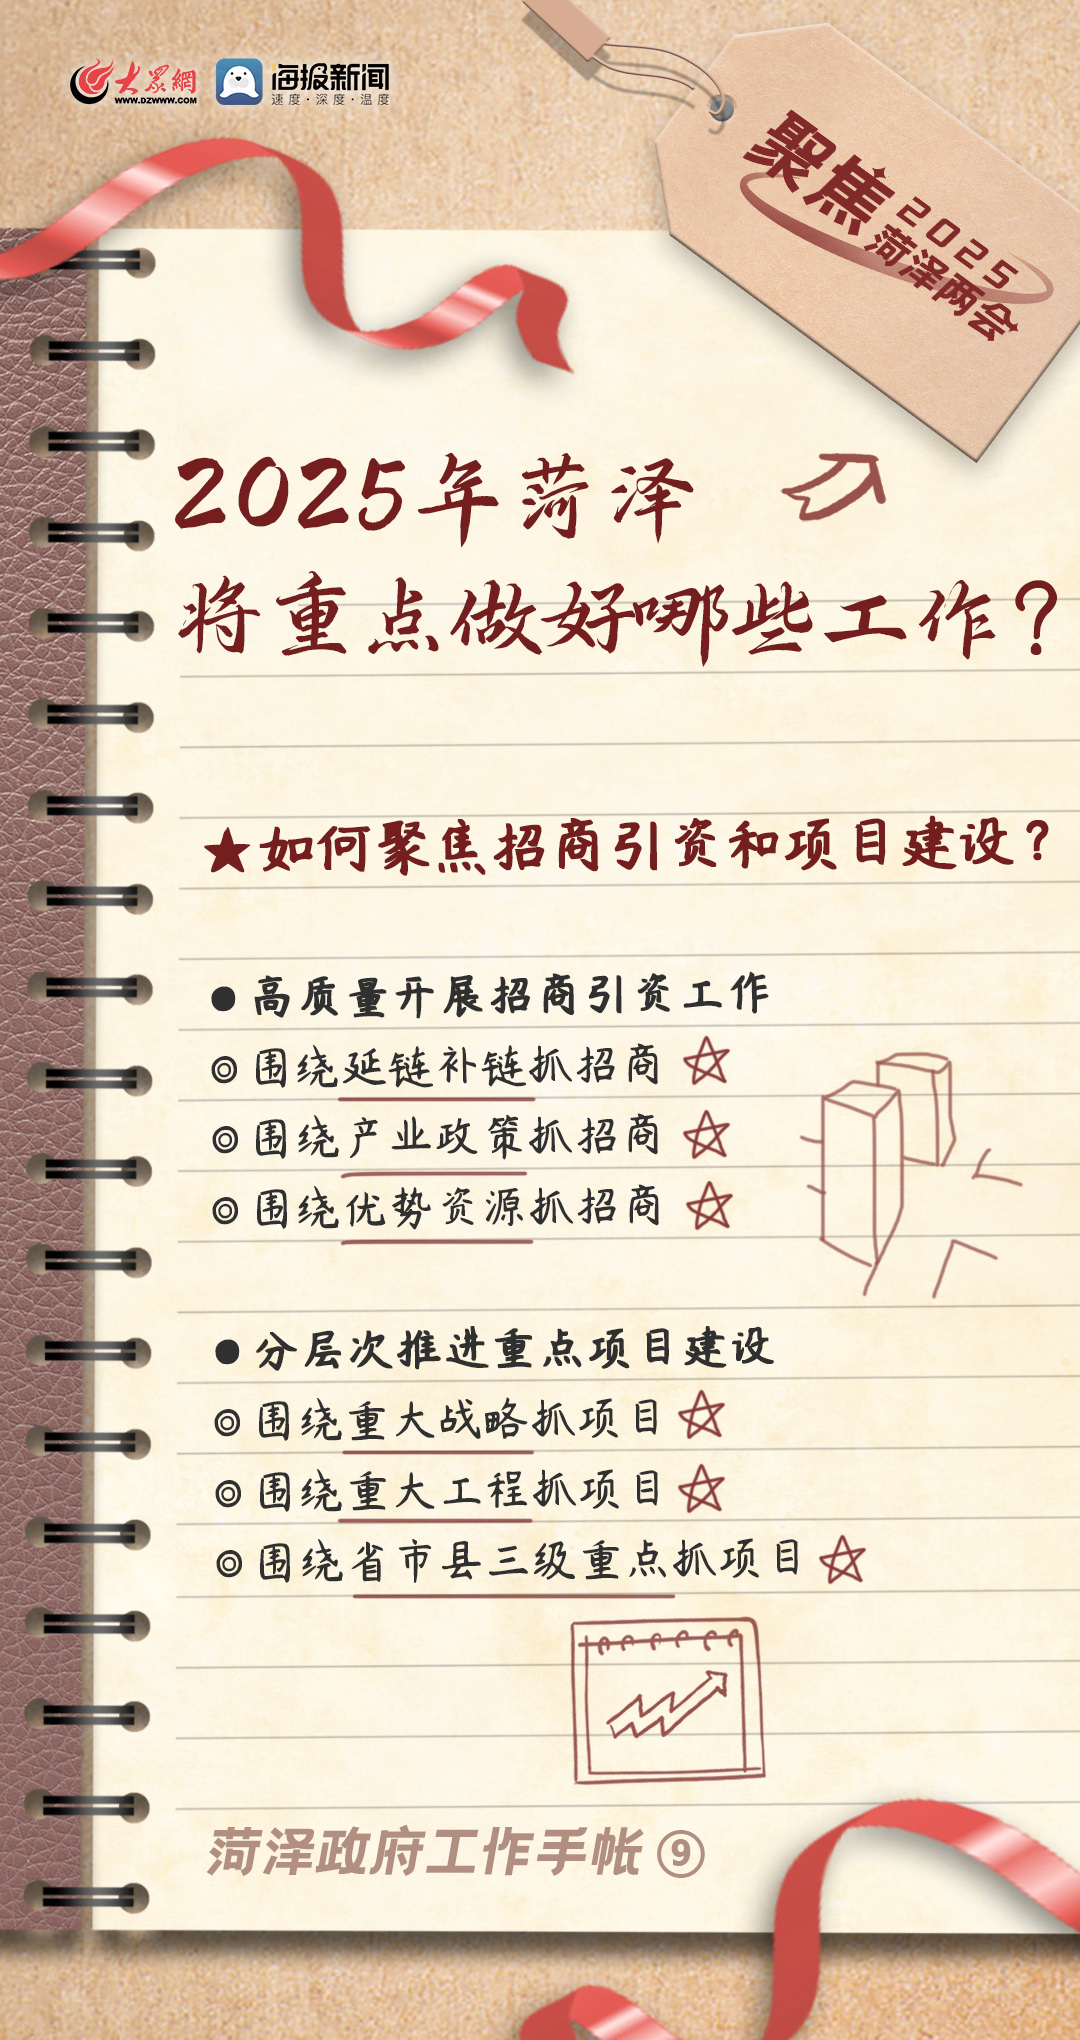 大眾網
WWW.DZWWW.COM
海报新闻
速度·深度·温度
聚焦
2025
菏泽两会
2025年菏泽
将重点做好哪些工作？
★如何聚焦招商引资和项目建设？
●高质量开展招商引资工作
◎围绕延链补链抓招商
◎围绕产业政策抓招商
◎围绕优势资源抓招商
●分层次推进重点项目建设
◎围绕重大战略抓项目
◎围绕重大工程抓项目
◎围绕省市县三级重点抓项目
菏泽政府工作手帐⑨